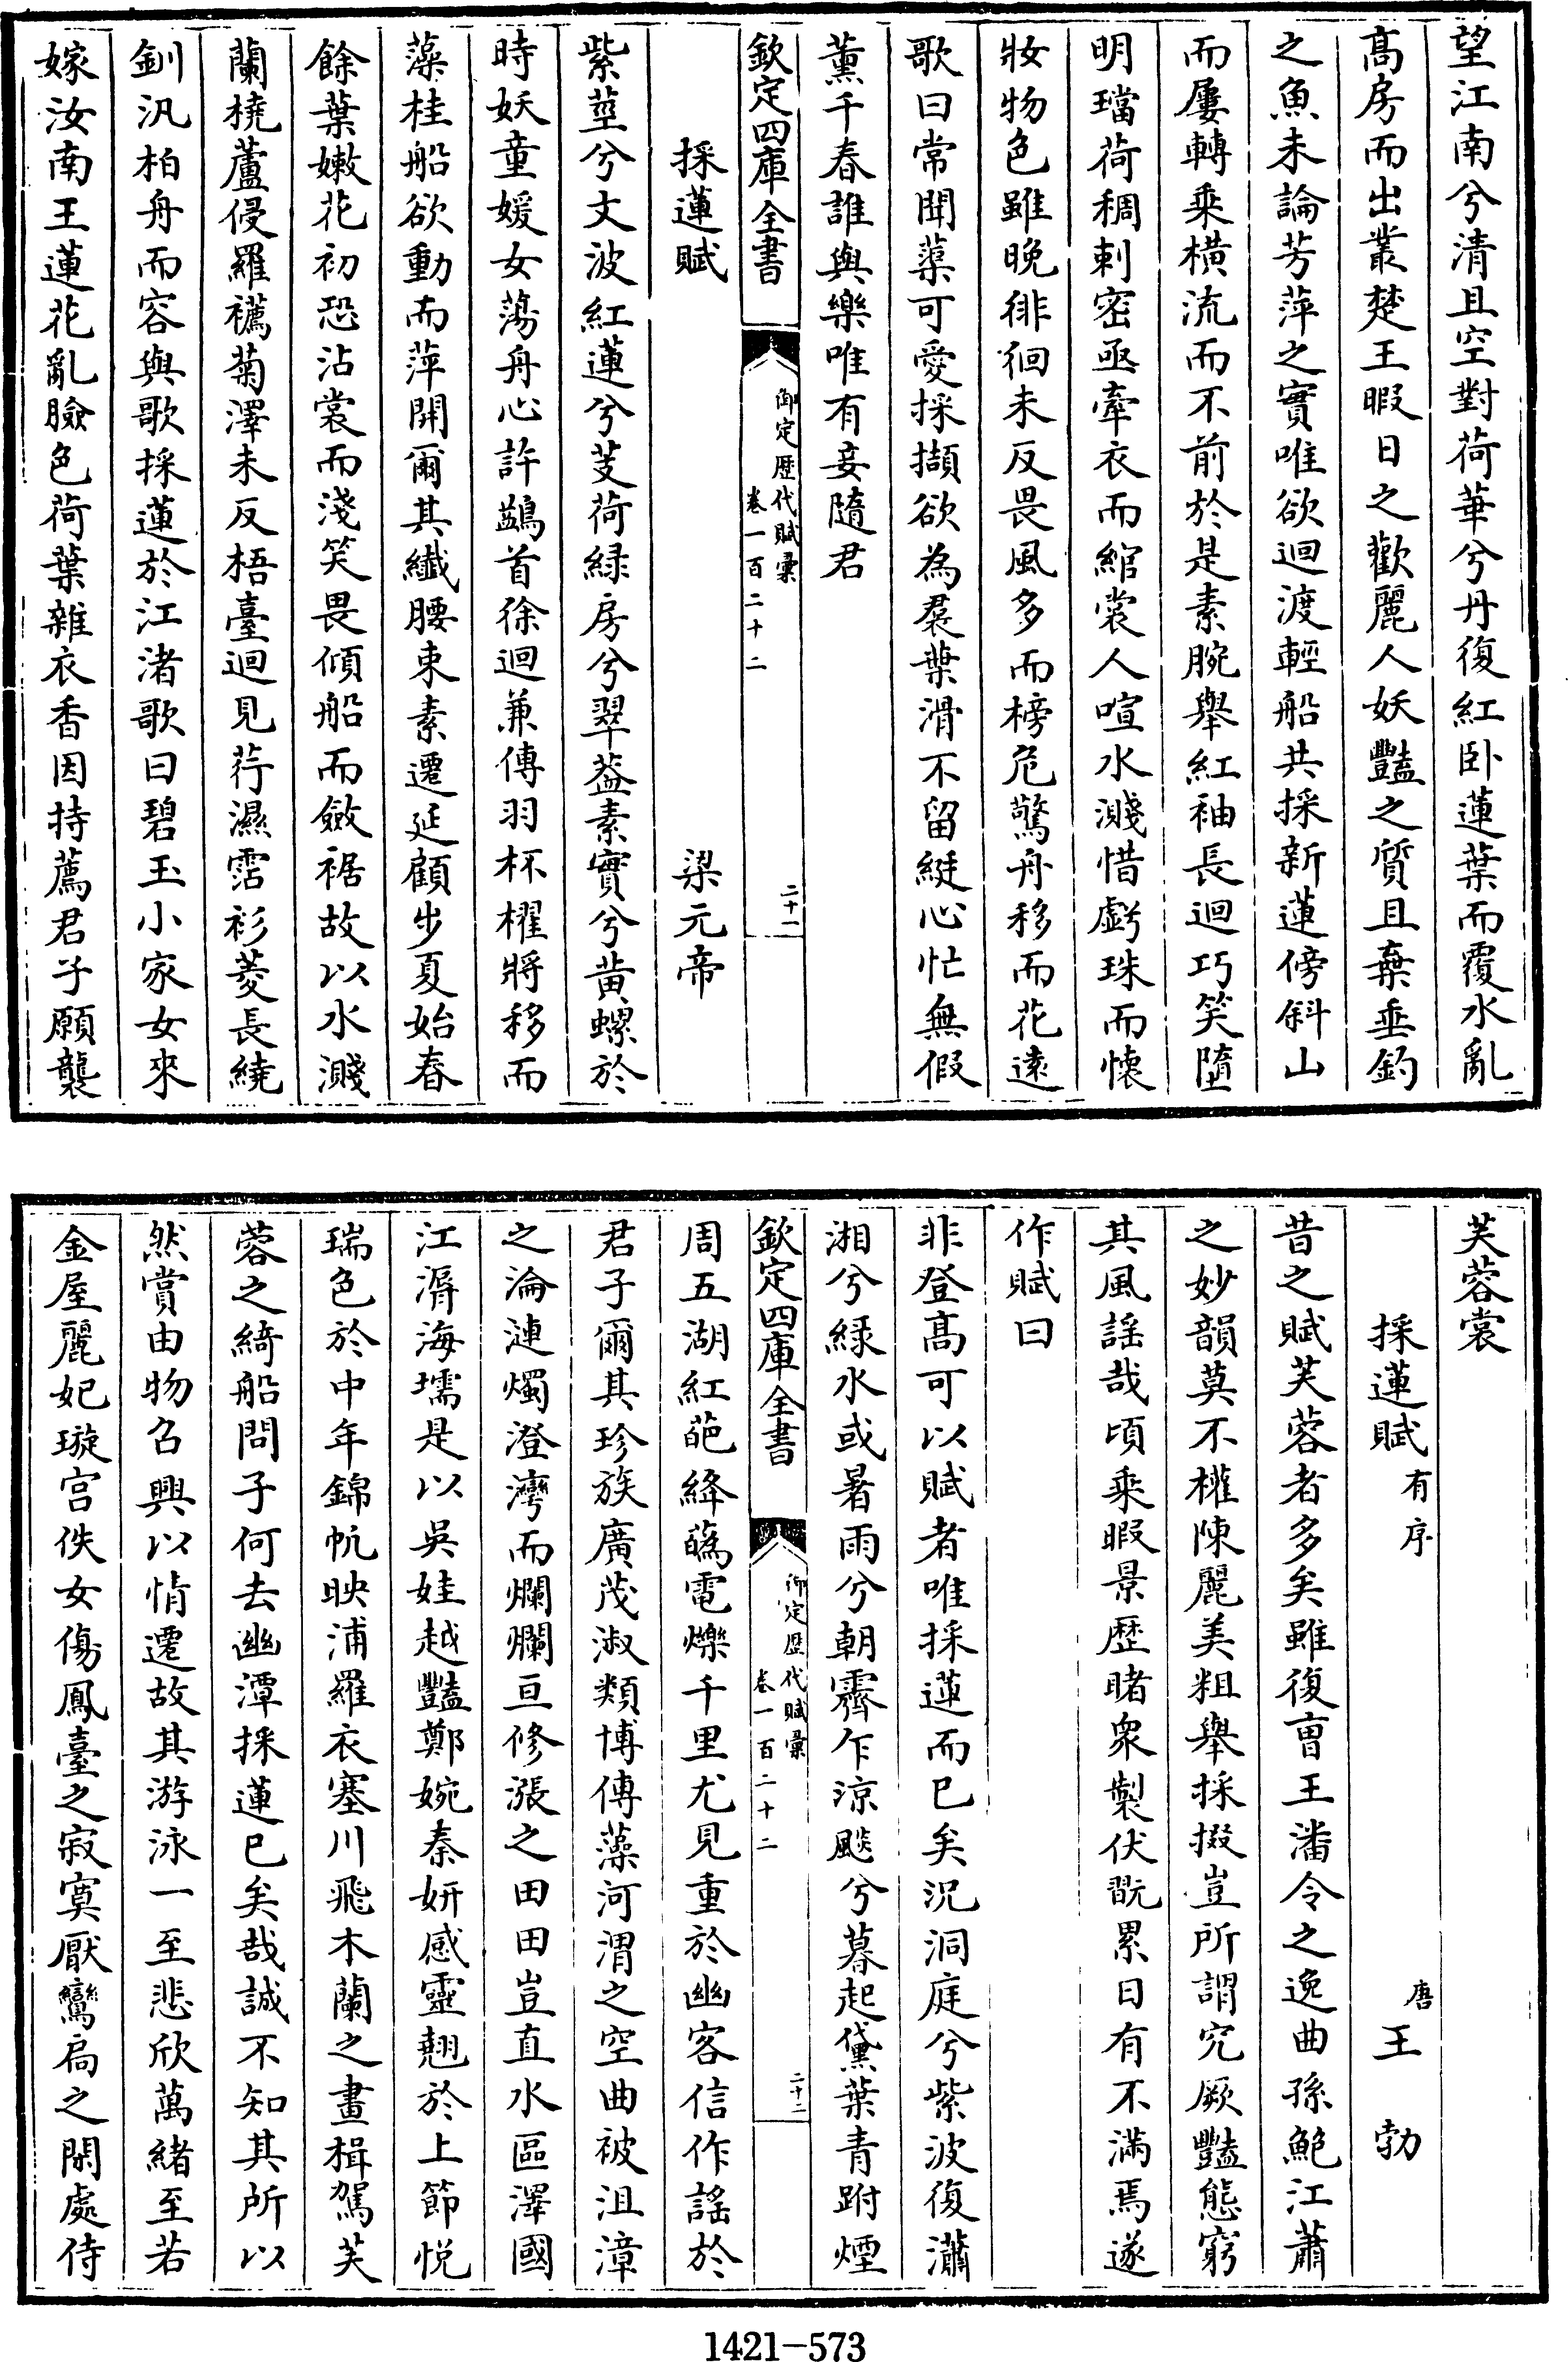 望江南兮清且空對荷華兮丹復紅卧蓮葉而覆水亂
髙房而出叢楚王暇日之歡麗人妖豔之質且棄垂釣
之魚未論芳萍之實唯欲迴渡輕船共採新蓮傍斜山
而屢轉乘橫流而不前於是素腕舉紅袖長迴巧笑墮
明璫荷稠刺密亟牽衣而綰裳人喧水濺惜虧珠而懷
妝物色雖晚徘徊未反畏風多而榜危驚舟移而花遠
歌曰常聞蕖可愛採擷欲為裙葉滑不留綖心忙無假
薰千春誰與樂唯有妾隨君
欽定四庫全書
御定歷代賦彙
卷一百二十二
二十一
採蓮賦
梁元帝
紫莖兮文波紅蓮兮芰荷緑房兮翠葢素實兮黄螺於
時妖童媛女蕩舟心許鷁首徐迴兼傳羽杯櫂將移而
藻桂船欲動而萍開爾其纖腰束素遷延顧步夏始春
餘葉嫩花初恐沾裳而淺笑畏傾船而斂裾故以水濺
蘭橈蘆侵羅䙰菊澤未反梧臺迥見荇濕霑衫菱長繞
釧汎柏舟而容與歌採蓮於江渚歌曰碧玉小家女來
嫁汝南王蓮花亂臉色荷葉雜衣香因持薦君子願襲
芙蓉裳
採蓮賦有序
唐王勃
昔之賦芙蓉者多矣雖復曺王潘令之逸曲孫鮑江蕭
之妙韻莫不權陳麗美粗舉採掇豈所謂究厥豔態窮
其風謡哉頃乘暇景歴睹衆製伏翫累日有不滿焉遂
作賦曰
非登髙可以賦者唯採蓮而已矣況洞庭兮紫波復瀟
湘兮緑水或暑雨兮朝霽乍涼飈兮暮起黛葉青跗煙
欽定四庫全書
御定歷代賦彙
卷一百二十二
二十二
周五湖紅葩絳蘤電爍千里尤見重於幽客信作謡於
君子爾其珍族廣茂淑類博傳藻河渭之空曲被沮漳
之淪漣燭澄灣而爛爛亘修漲之田田豈直水區澤國
江漘海壖是以吳娃越豔鄭婉秦妍感靈翹於上節悦
瑞色於中年錦帆映浦羅衣塞川飛木蘭之畫楫駕芙
蓉之綺船問子何去幽潭採蓮已矣哉誠不知其所以
然賞由物召興以情遷故其游泳一至悲欣萬緒至若
金屋麗妃璇宫佚女傷鳳臺之寂寞厭鸞扃之閑處侍
1421-573